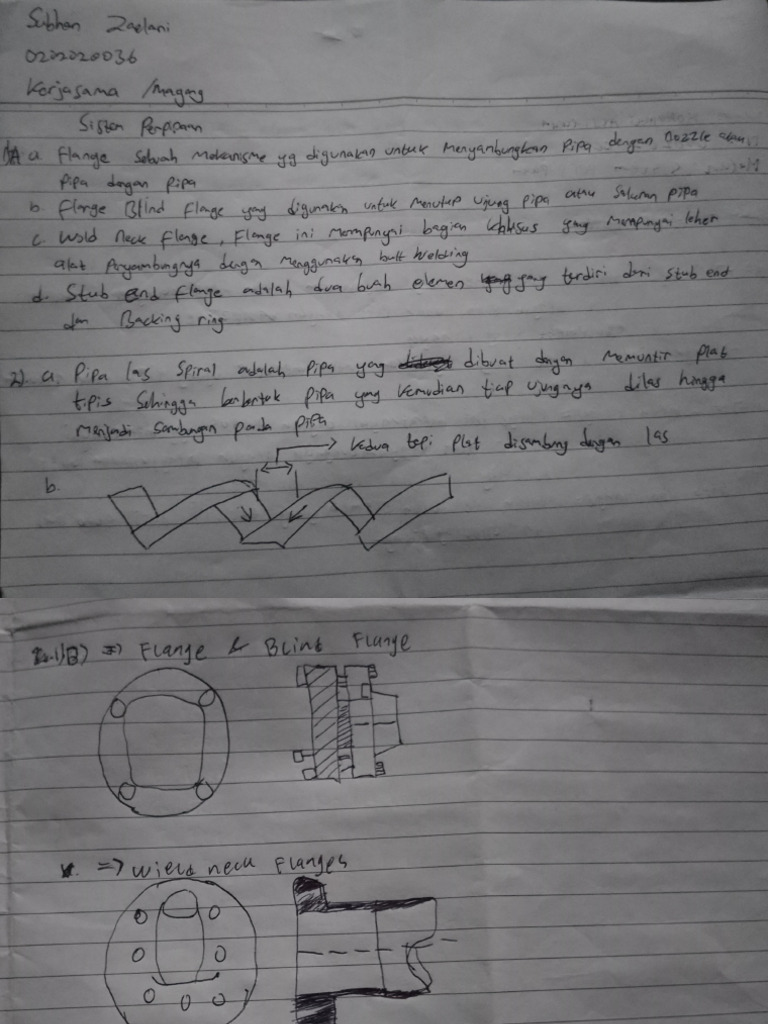 Subhan Zaelani
0202020036
Kerjasama / Magang
Sistem Perpipaan
1)A a. Flange sebuah mekanisme yg digunakan untuk menyambungkan pipa dengan nozzle atau
pipa dengan pipa
b. Flange Blind flange yang digunakan untuk menutup ujung pipa atau saluran pipa
c. Wold neck flange, Flange ini mempunyai bagian khusus yang mempunyai leher
alat penyambungnya dengan menggunakan butt welding
d. Stub End flange adalah dua buah elemen yang terdiri dari stub end
dan Backing ring
2). a. Pipa las spiral adalah pipa yang dibuat dengan memuntir plat
tipis sehingga berbentuk pipa yang kemudian tiap ujungnya dilas hingga
menjadi sambungan pada pipa
→ kedua tepi plat disambung dengan las
b.
1)B) => Flange & Blint Flange
=> Wield neck Flanges